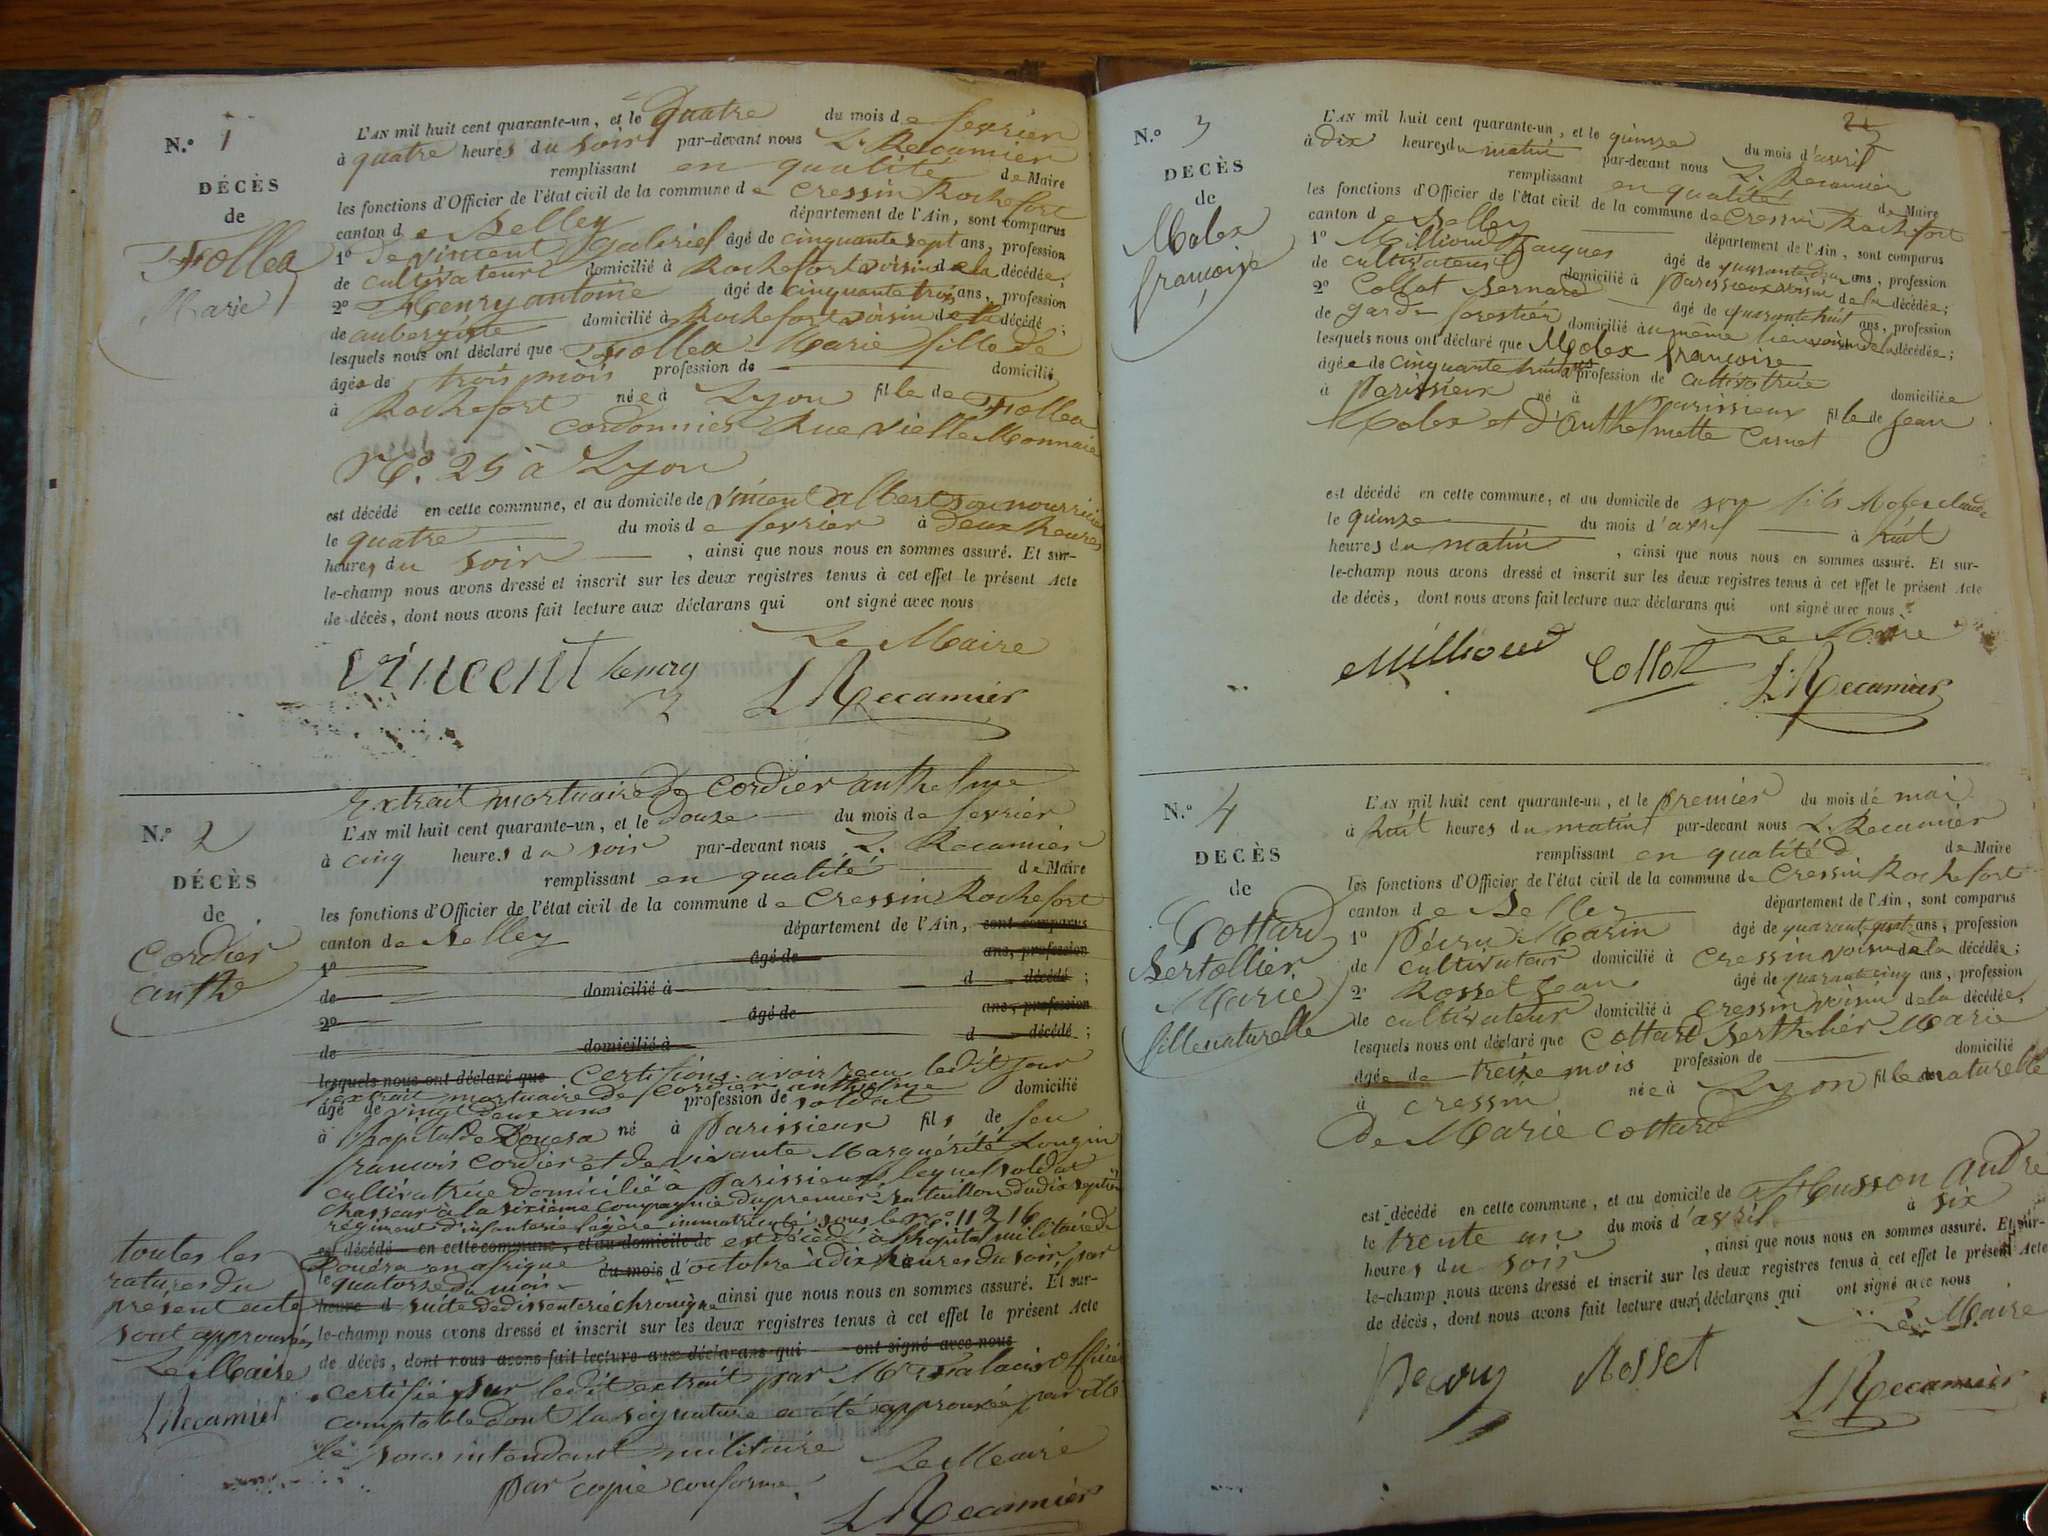 N.º 1
DÉCÈS
de
Follea
Marie
L'AN mil huit cent quarante-un, et le quatre du mois de fevrier
à quatre heures du soir par-devant nous L. Recamier
remplissant en qualité de Maire
les fonctions d'Officier de l'état civil de la commune de Cressin Rochefort
canton de Belley département de l'Ain, sont comparus
1º De vincent Gabriel âgé de cinquante sept ans, profession
de cultivateur domicilié à Rochefort voisin de la décédée;
2º Henry antoine âgé de cinquante trois ans, profession
de aubergiste domicilié à Rochefort voisin de la décédé;
lesquels nous ont déclaré que Follea Marie fille de
âgée de trois mois profession de domicilié
à Rochefort née à Lyon fille de Follea
Cordonnier Rue vielle Monnaie
Nº. 25 à Lyon
est décédé en cette commune, et au domicile de vincent albert son nourricier
le quatre du mois de fevrier à Deux heures
heures du soir, ainsi que nous nous en sommes assuré. Et sur-
le-champ nous avons dressé et inscrit sur les deux registres tenus à cet effet le présent Acte
de décès, dont nous avons fait lecture aux déclarans qui ont signé avec nous
Le Maire
vincent henry L Recamier
N.º 2
DÉCÈS
de
Cordier
anthe
Extrait mortuaire de Cordier anthelme
L'AN mil huit cent quarante-un, et le douze du mois de fevrier
à cinq heures du soir par-devant nous L. Recamier
remplissant en qualité de Maire
les fonctions d'Officier de l'état civil de la commune de Cressin Rochefort
canton de Belley département de l'Ain, sont comparus
1º âgé de ans, profession
de domicilié à d décédé;
2º âgé de ans, profession
de domicilié à d décédé;
lesquels nous ont déclaré que Certifions avoir recu ledit jour
l'extrait mortuaire de Cordier anthelme domicilié
âgé de vingt deux ans profession de soldat
à l'hopital de Douera né à Parissieux fils de feu
francois Cordier et de vivante Marguérite Longin
cultivatrice domicilié à Parissieux, lequel soldat
chasseur à la sixième compagnie du premier Bataillon du dix septième
régiment d'infanterie légère immatriculé sous le nº. 11216
est décédé en cette commune, et au domicile de est décédé à l'hopital militaire de
Douéra en afrique
le quatorze du mois du mois d'octobre à dix heures du soir, par
heure d suite de dissenterie chronique ainsi que nous nous en sommes assuré. Et sur-
le-champ nous avons dressé et inscrit sur les deux registres tenus à cet effet le présent Acte
de décès, dont nous avons fait lecture aux déclarans qui ont signé avec nous
certifié sur ledit extrait par Mr officier
comptable dont la signature a été approuvée par Mr
le sous intendant militaire Le Maire
par copie conforme
L Recamier
toutes les
ratures du
présent acte
sont approuvées
Le Maire
L Recamier
22
N.º 3
DECÈS
de
Molex
françoise
L'AN mil huit cent quarante-un, et le quinze du mois d'avril
à dix heures du matin par-devant nous L. Recamier
remplissant en qualité de Maire
les fonctions d'Officier de l'état civil de la commune de Cressin Rochefort
canton de Belley département de l'Ain, sont comparus
1º Milliond Jacques âgé de quarante deux ans, profession
de cultivateur domicilié à Parissieux voisin de la décédée;
2º Collot Bernard âgé de quarante huit ans, profession
de garde forestier domicilié au même lieu voisin de la décédée;
lesquels nous ont déclaré que Molex françoise
âgée de cinquante huit ans profession de cultivatrice domiciliée
à Parissieux né à Parissieux fille de Jean
Molex et d'Anthelmette Curnet
est décédé en cette commune, et au domicile de son fils Molex claude
le quinze du mois d'avril à huit
heures du matin, ainsi que nous nous en sommes assuré. Et sur-
le-champ nous avons dressé et inscrit sur les deux registres tenus à cet effet le présent Acte
de décès, dont nous avons fait lecture aux déclarans qui ont signé avec nous.
Le Maire
Milliond Collot L Recamier
N.º 4
DECÈS
de
Cottard
Bertollier
Marie
fille naturelle
L'AN mil huit cent quarante-un, et le premier du mois de mai
à huit heures du matin par-devant nous L. Recamier
remplissant en qualité de Maire
les fonctions d'Officier de l'état civil de la commune de Cressin Rochefort
canton de Belley département de l'Ain, sont comparus
1º Marin âgé de ans, profession
de cultivateur domicilié à Cressin voisin de la décédée;
2º Rosset Jean âgé de quarante cinq ans, profession
de cultivateur domicilié à Cressin voisin de la décédée,
lesquels nous ont déclaré que Cottard Berthelier Marie
âgée de treize mois profession de domicilié
à Cressin née à Lyon fille naturelle
De Marie Cottard
est décédé en cette commune, et au domicile de Husson André
le trente un du mois d'avril à six
heures du soir, ainsi que nous nous en sommes assuré. Et sur-
le-champ nous avons dressé et inscrit sur les deux registres tenus à cet effet le présent Acte
de décès, dont nous avons fait lecture aux déclarans qui ont signé avec nous
Le Maire
Rosset L Recamier